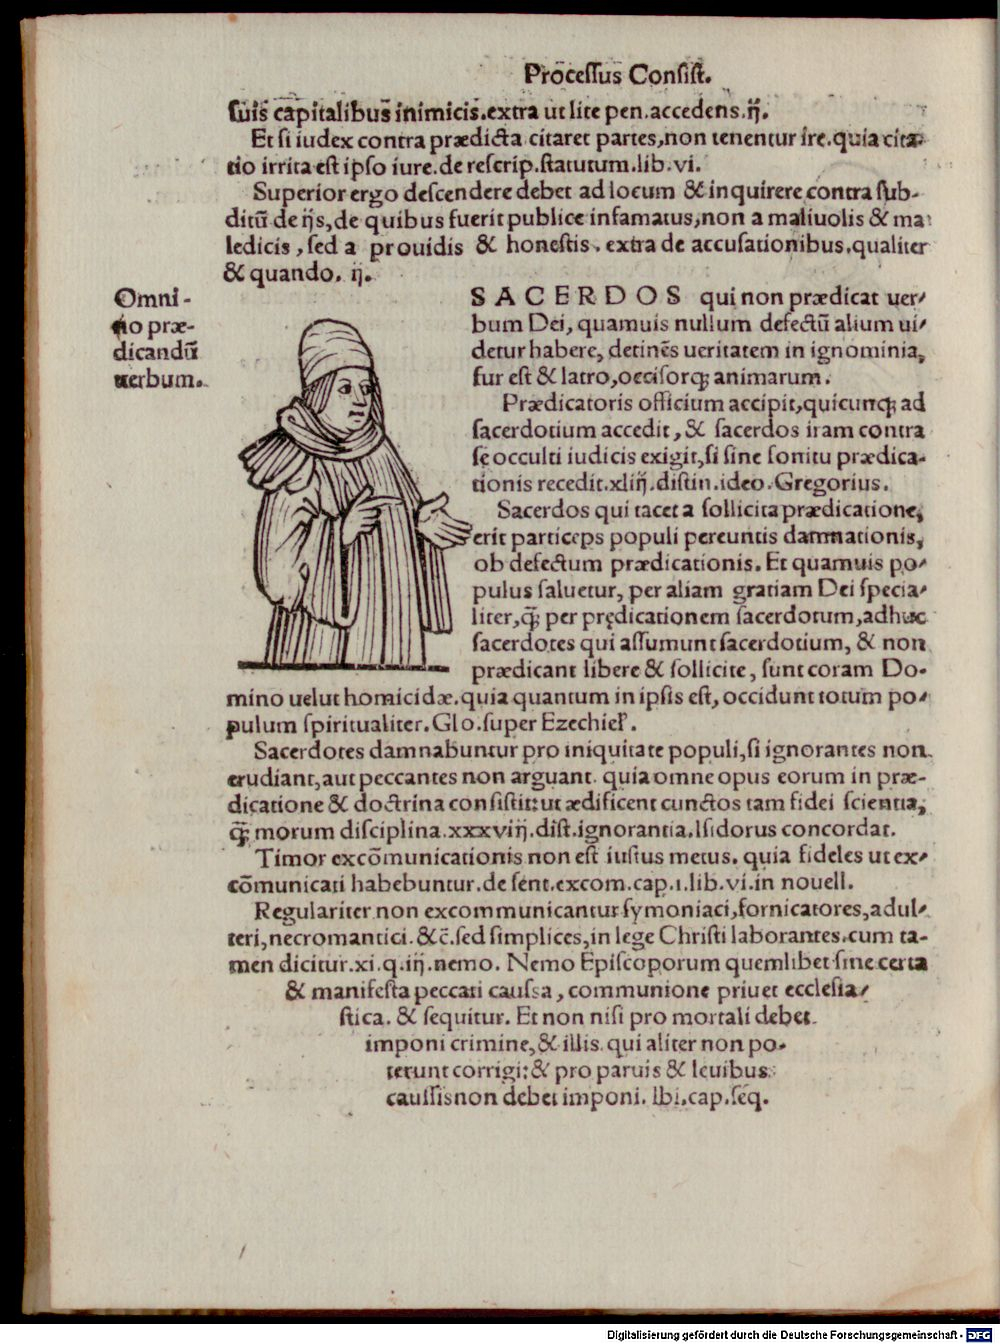 Processus Consist.
suis capitalibus inimicis.extra ut lite pen.accedens.ij.
Et si iudex contra prædicta citaret partes,non tenentur ire.quia cita-
tio irrita est ipso iure.de rescrip.statutum.lib.vi.
Superior ergo descendere debet ad locum & inquirere contra sub-
ditū de ijs,de quibus fuerit publice infamatus,non a maliuolis & ma
ledicis, sed a prouidis & honestis. extra de accusationibus.qualiter
& quando. ij.
Omni-
no præ-
dicandū
uerbum.
SACERDOS qui non prædicat uer-
bum Dei, quamuis nullum defectū alium ui-
detur habere, detinēs ueritatem in ignominia,
fur est & latro,occisorq; animarum.
Prædicatoris officium accipit,quicunq; ad
sacerdotium accedit, & sacerdos iram contra
se occulti iudicis exigit,si sine sonitu prædica-
tionis recedit.xliij.distin.ideo.Gregorius.
Sacerdos qui tacet a sollicita prædicatione,
erit particeps populi pereuntis damnationis,
ob defectum prædicationis. Et quamuis po-
pulus saluetur, per aliam gratiam Dei specia-
liter,q̄; per prędicationem sacerdotum,adhuc
sacerdotes qui assumunt sacerdotium, & non
prædicant libere & sollicite, sunt coram Do-
mino uelut homicidæ.quia quantum in ipsis est, occidunt totum po-
pulum spiritualiter.Glo.super Ezechiel.
Sacerdotes damnabuntur pro iniquitate populi,si ignorantes non
erudiant,aut peccantes non arguant. quia omne opus eorum in præ-
dicatione & doctrina consistit:ut ædificent cunctos tam fidei scientia,
q̄; morum disciplina.xxxviij.dist.ignorantia.Isidorus concordat.
Timor excōmunicationis non est iustus metus. quia fideles ut ex-
cōmunicati habebuntur.de sent.excom.cap.1.lib.vi.in nouell.
Regulariter non excommunicantur symoniaci,fornicatores,adul-
teri,necromantici.&c̄.sed simplices,in lege Christi laborantes.cum ta-
men dicitur.xi.q.iij.nemo. Nemo Episcoporum quemlibet sine certa
& manifesta peccati caussa, communione priuet ecclesia-
stica. & sequitur. Et non nisi pro mortali debet
imponi crimine,& illis qui aliter non po-
terunt corrigi:& pro paruis & leuibus
caussis non debet imponi. Ibi.cap.seq.
Digitalisierung gefördert durch die Deutsche Forschungsgemeinschaft - DFG